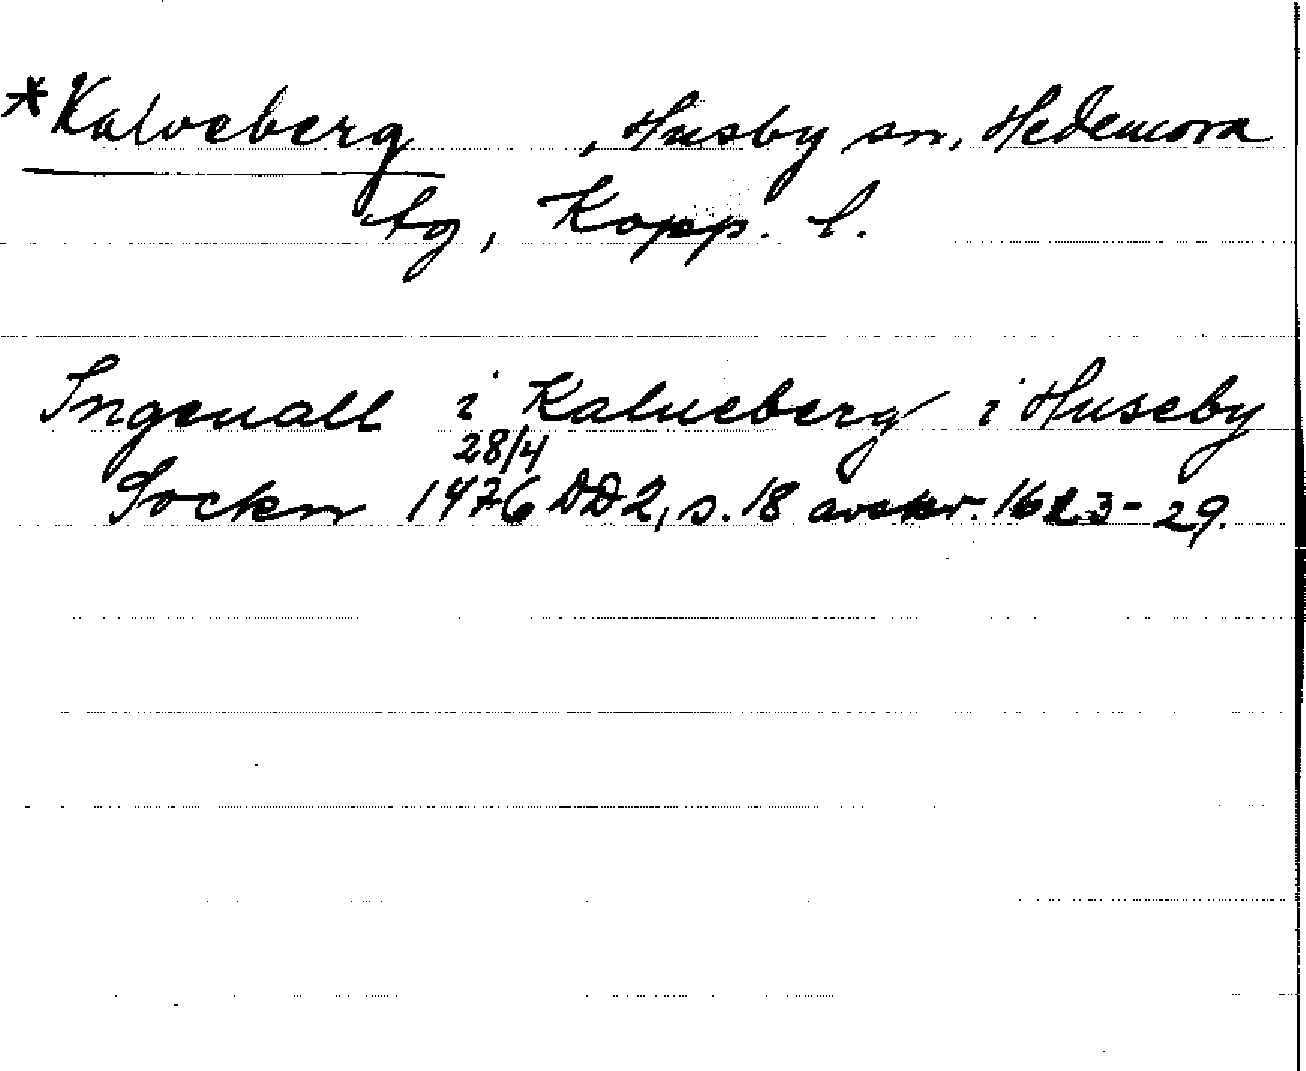 *Kalveberg , Husby sn, Hedemora
tg, Kopp. l.
Ingeuall i Kalueberg i Huseby
28/4
Sockn 1476 DD2, s. 18 avskr. 1623-29.